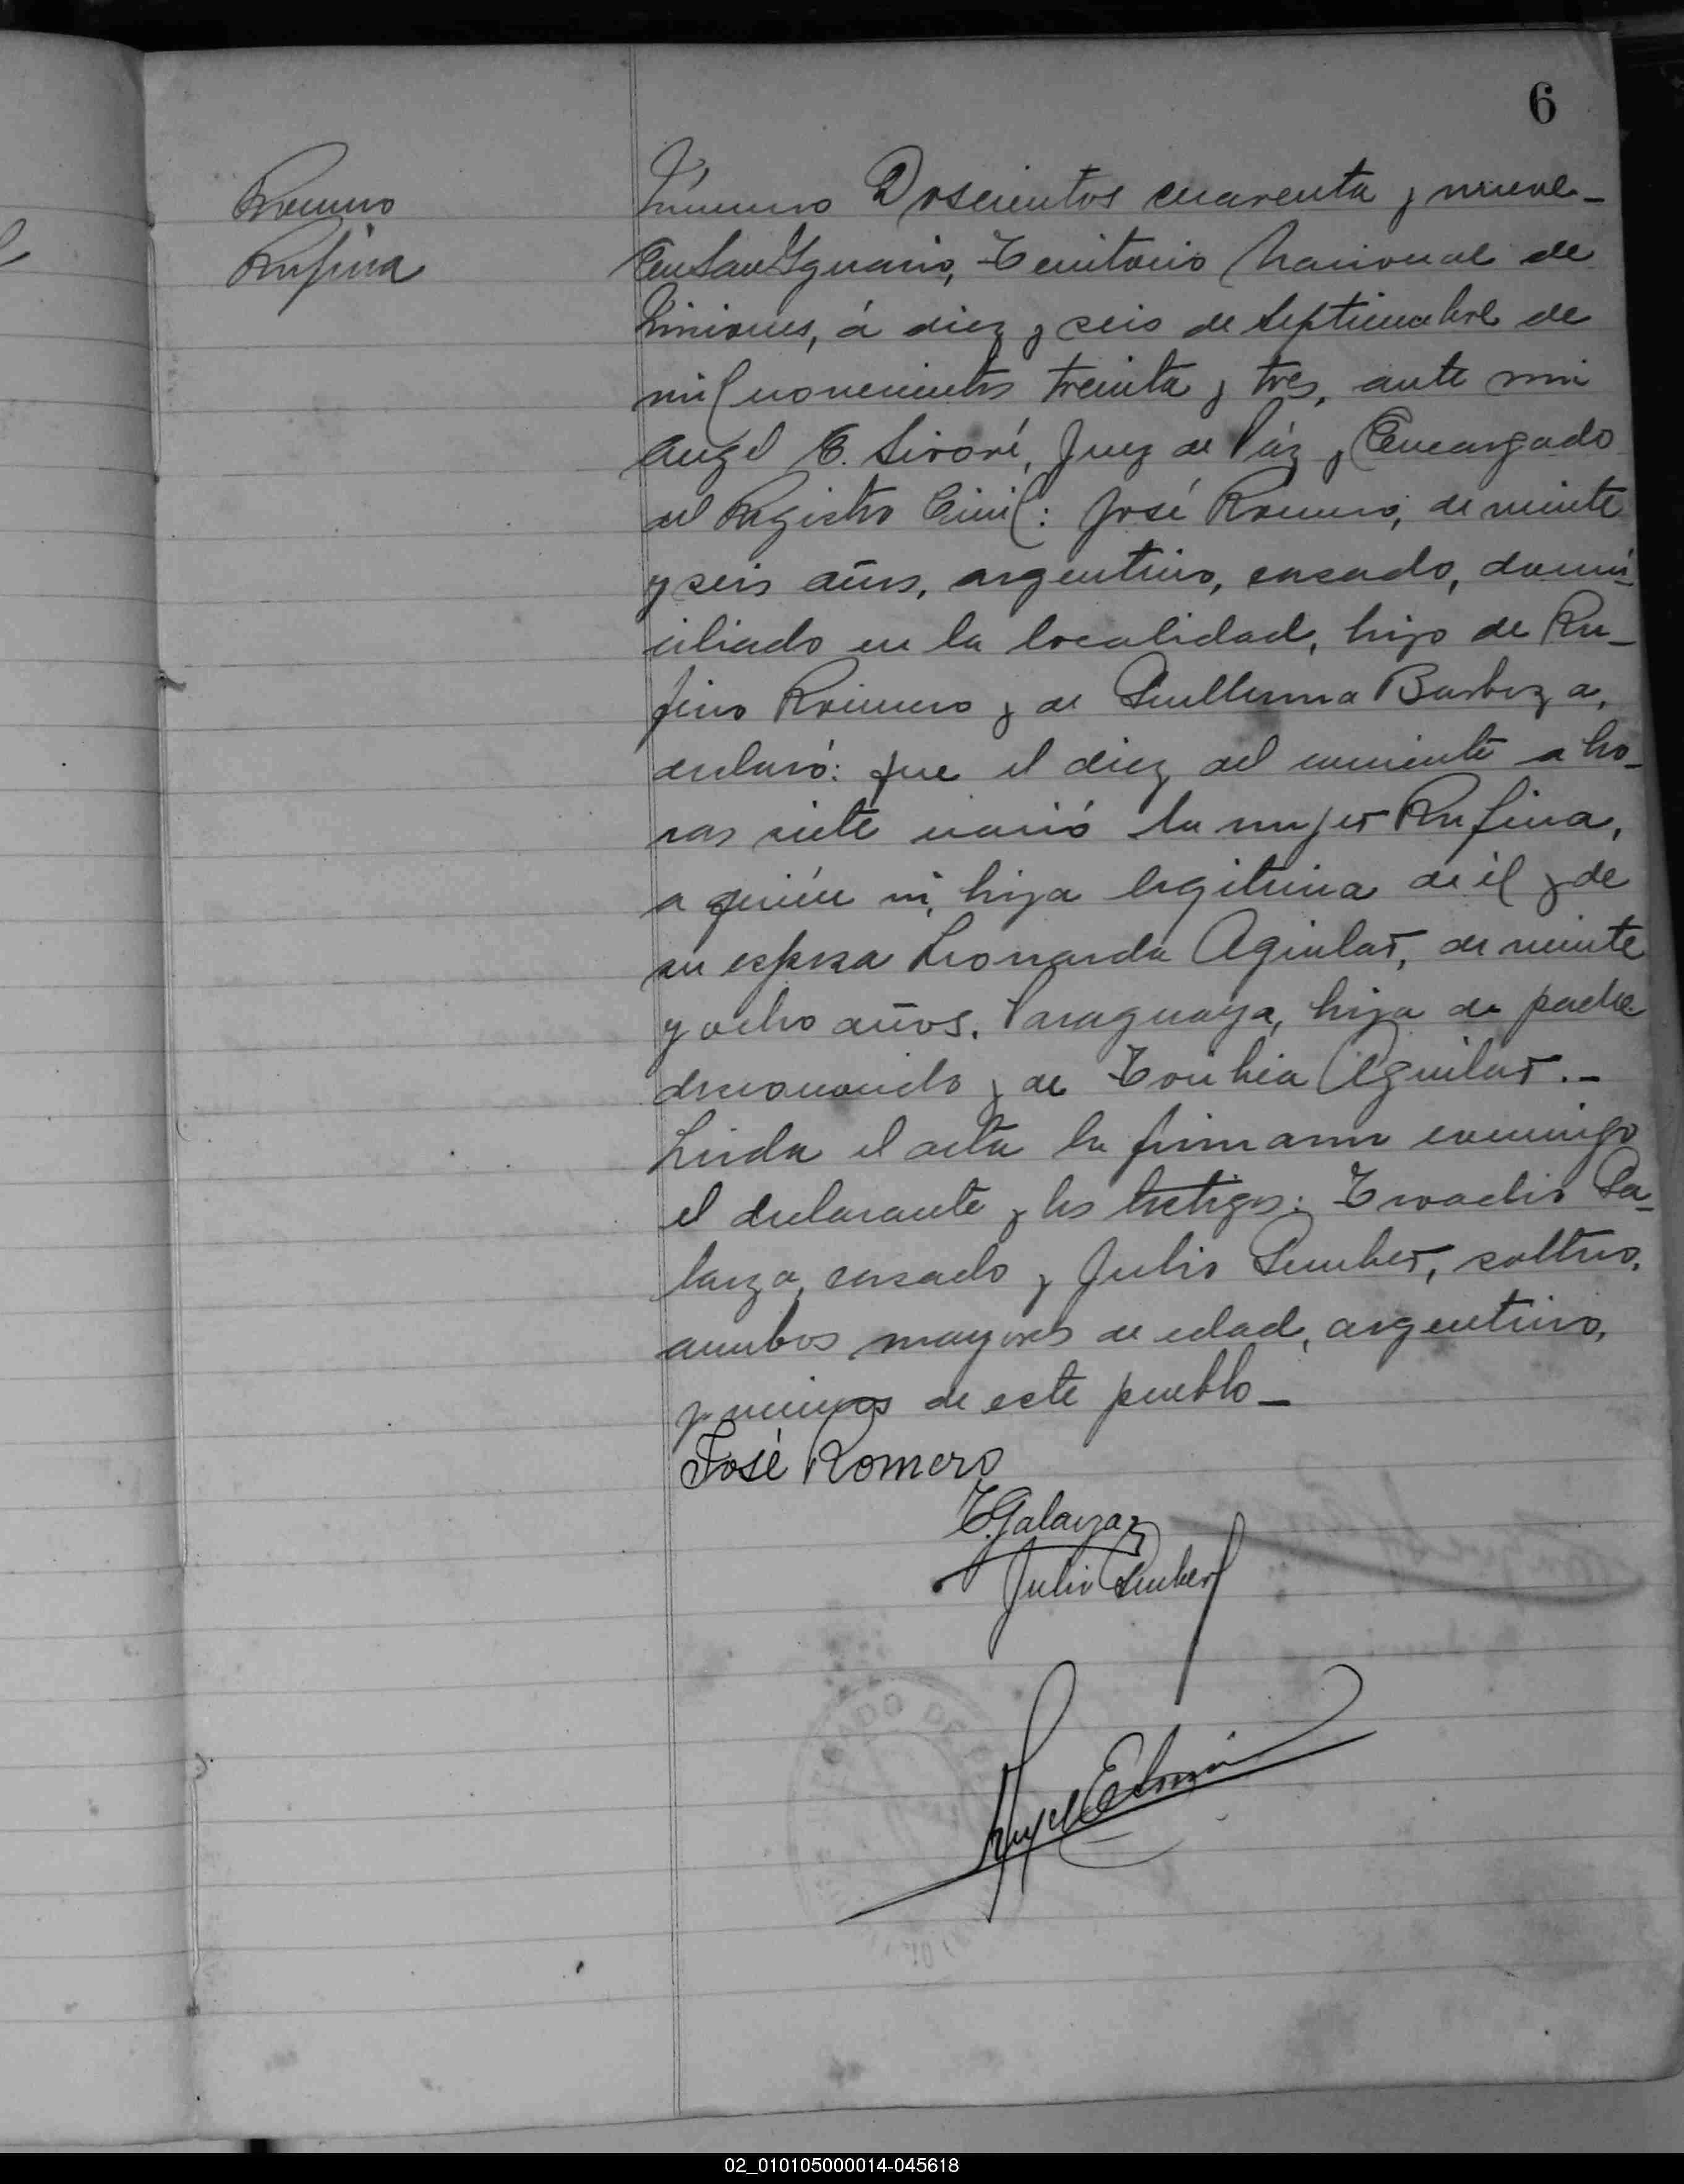 6
Romero
Rufina
Número Doscientos cuarenta y nueve_
En San Ygnacio, Territorio Nacional de
Misiones, á diez y seis de Septiembre de
mil novecientos treinta y tres, ante mi
Angel E. Sivori, Juez de Páz y Encargado
del Registro Civil: José Romero, de veinte
y seis años, argentino, casado, domi-
ciliado en la localidad, hijo de Ru_
fino Romero y de Guillerma Barboza,
declaró: que el diez del corriente a ho_
ras siete nació la mujer Rufina,
a quién vi, hija legitima de él y de
su esposa Leonarda Aguilar, de veinte
y ocho años, Paraguaya, hija de padre
desconocido y de Toribia Aguilar._
Leida el acta la firmaron conmigo
el declarante y los testigos: Ga_
larza, casado y Julio soltero,
ambos mayores de edad, argentinos,
y vecinos de este pueblo_
José Romero
T. Galarza
Julio
Angel E.
ADO DE
02_010105000014-045618